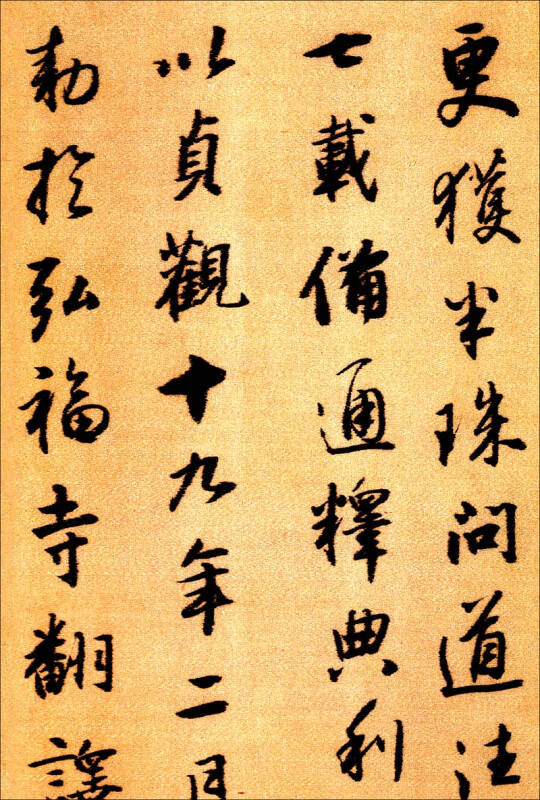 更獲半珠問道往
七載備通釋典利
以貞觀十九年二月
勅於弘福寺翻譯